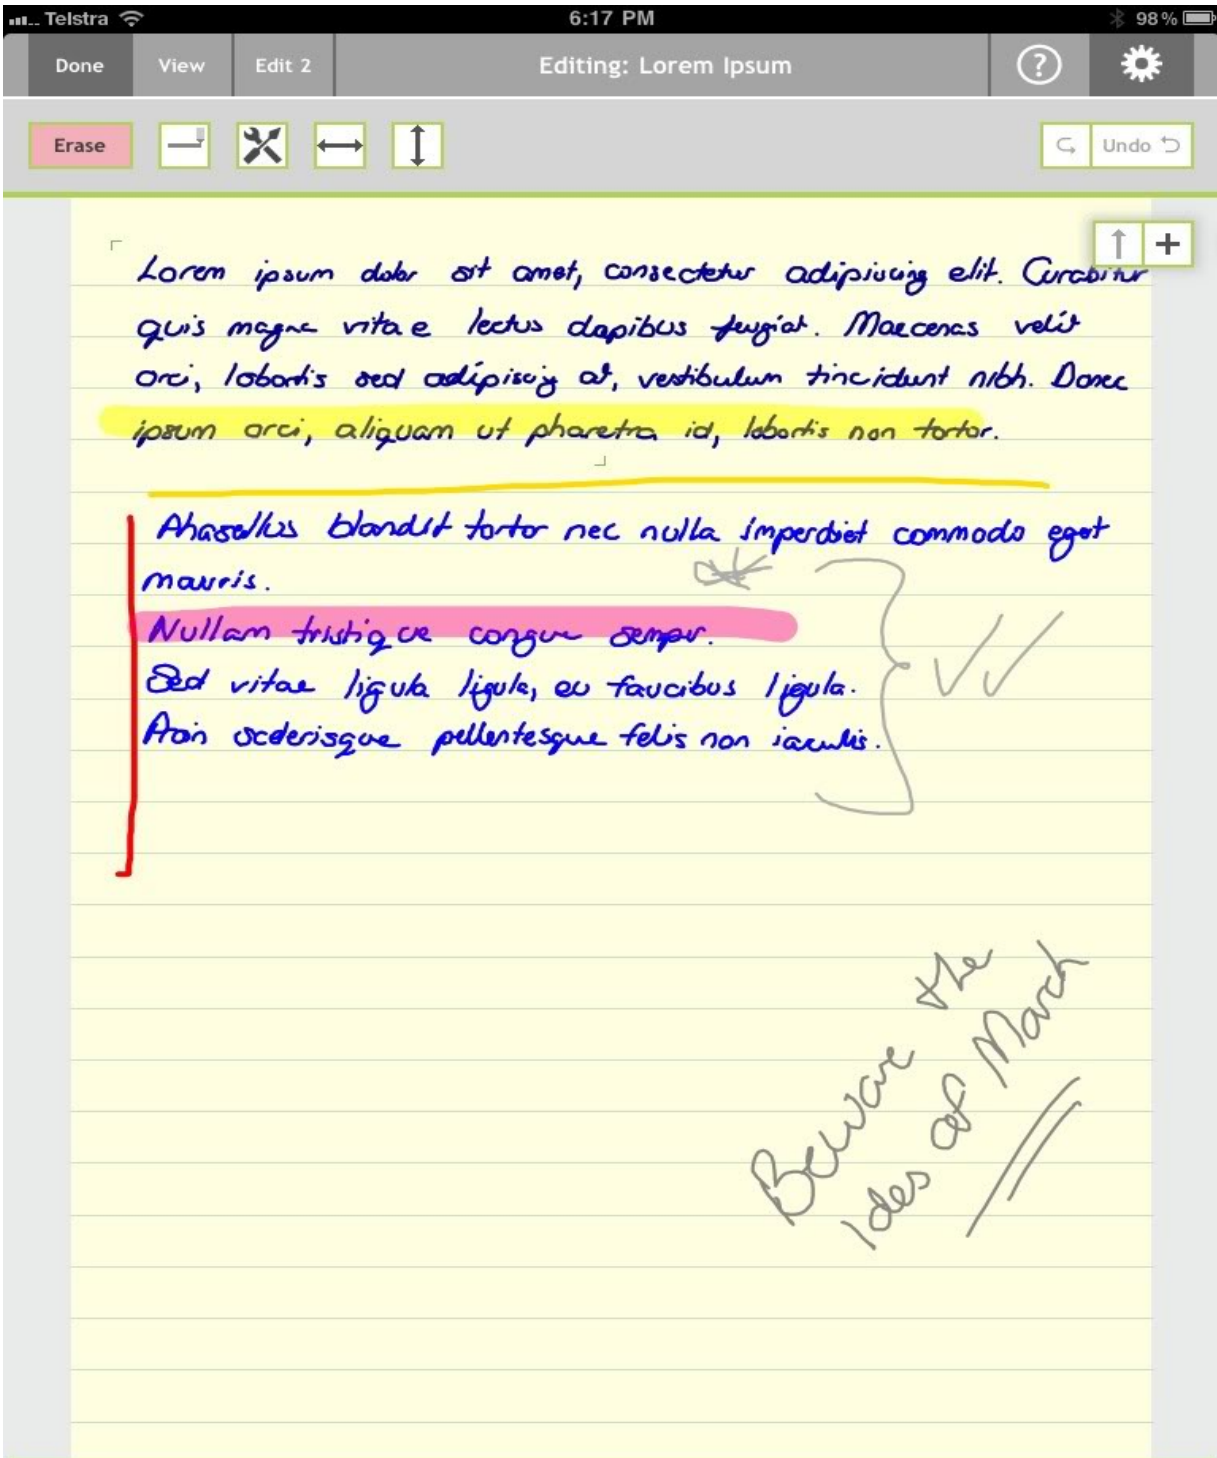 Telstra 6:17 PM 98%
Done View Edit 2 Editing: Lorem Ipsum ?
Erase Undo
Lorem ipsum dolor sit amet, consectetur adipiscing elit. Curabitur
quis magna vitae lectus dapibus feugiat. Maecenas velit
orci, lobortis sed adipiscing at, vestibulum tincidunt nibh. Donec
ipsum orci, aliquam ut pharetra id, lobortis non tortor.
Phasellus blandit tortor nec nulla imperdiet commodo eget
mauris.
Nullam tristique congue semper.
Sed vitae ligula ligula, eu faucibus ligula.
Proin scelerisque pellentesque felis non iaculis.
Beware the
ides of March